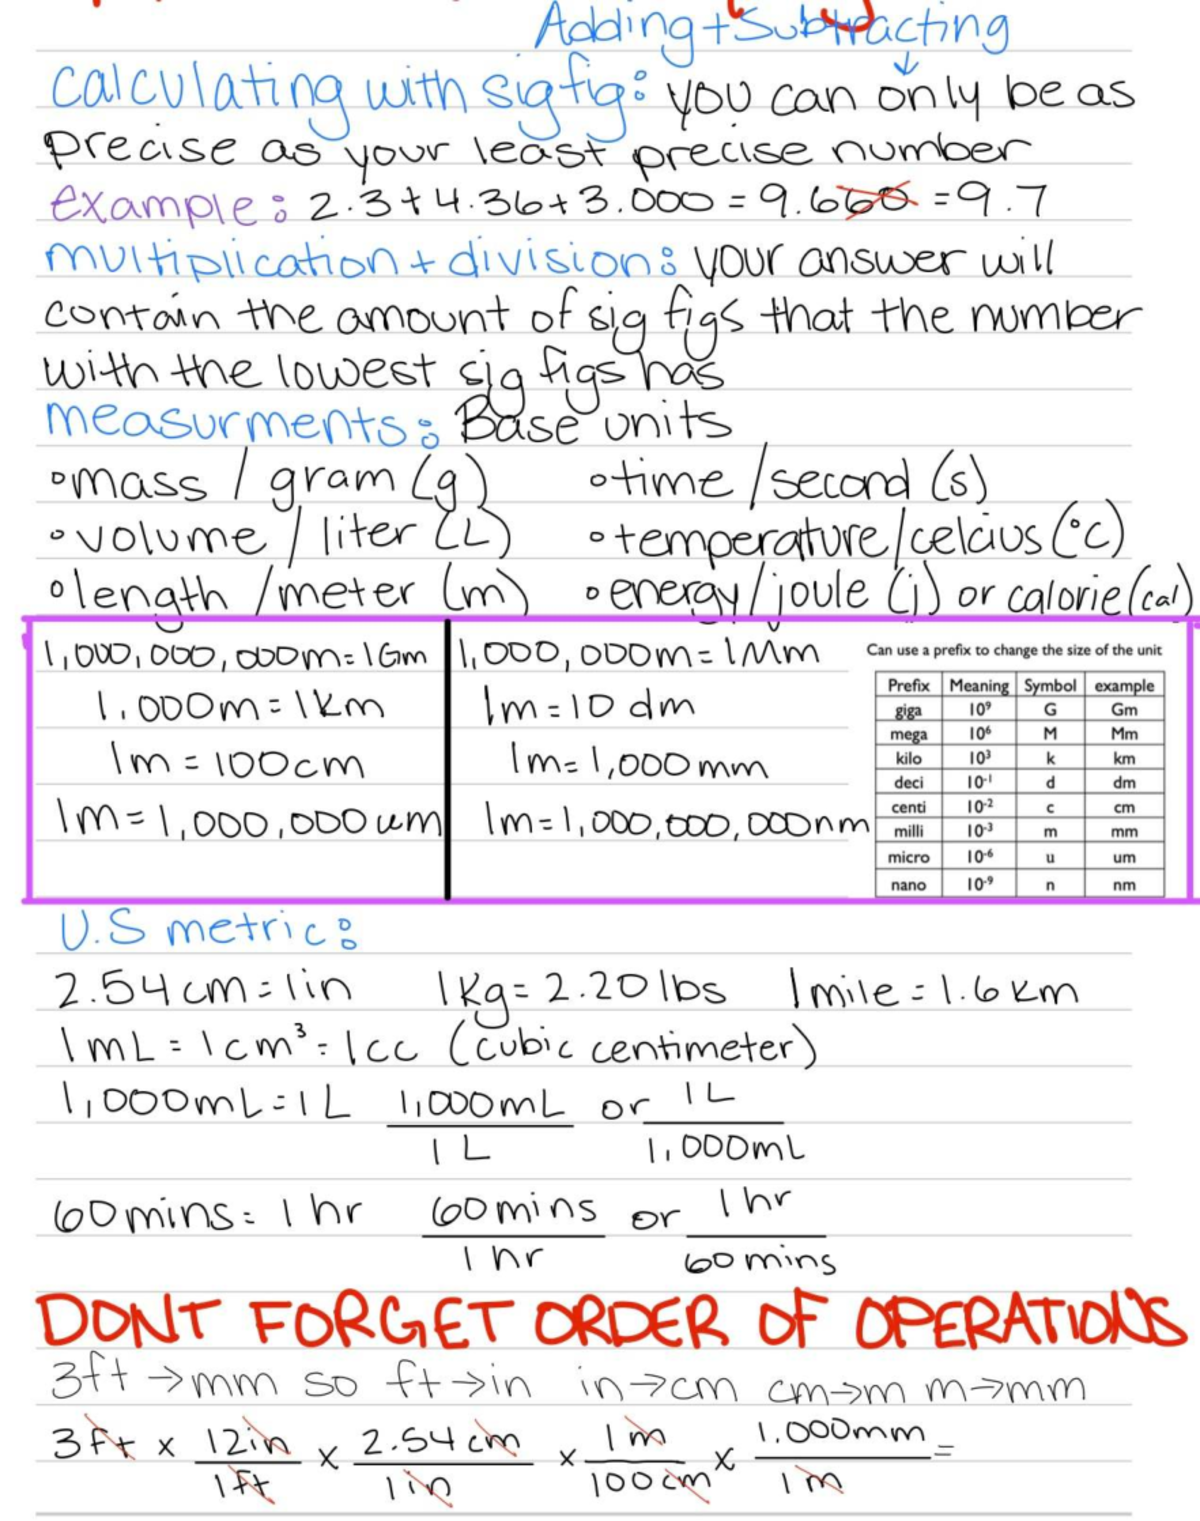 Adding + Subtracting
calculating with sig fig: you can only be as
precise as your least precise number
example: 2.3 + 4.36 + 3.000 = 9.660 = 9.7
multiplication + division: your answer will
contain the amount of sig figs that the number
with the lowest sig figs has
measurments: Base units
◦mass / gram (g) ◦time / second (s)
◦volume / liter (L) ◦temperature / celcius (°C)
◦length / meter (m) ◦energy / joule (j) or calorie (cal)
1,000,000,000m = 1Gm
1,000m = 1km
1m = 100cm
1m = 1,000,000um
1,000,000m = 1Mm
1m = 10 dm
1m = 1,000mm
1m = 1,000,000,000nm
Can use a prefix to change the size of the unit
Prefix Meaning Symbol example
giga 10⁹ G Gm
mega 10⁶ M Mm
kilo 10³ k km
deci 10⁻¹ d dm
centi 10⁻² c cm
milli 10⁻³ m mm
micro 10⁻⁶ u um
nano 10⁻⁹ n nm
U.S metric:
2.54 cm = 1in 1Kg = 2.20 lbs 1 mile = 1.6 km
1mL = 1cm³ = 1cc (cubic centimeter)
1,000mL = 1L 1,000mL / 1L or 1L / 1,000mL
60mins = 1hr 60mins / 1hr or 1hr / 60mins
DONT FORGET ORDER OF OPERATIONS
3ft → mm so ft → in in → cm cm → m m → mm
3ft x 12in / 1ft x 2.54cm / 1in x 1m / 100cm x 1.000mm / 1m =